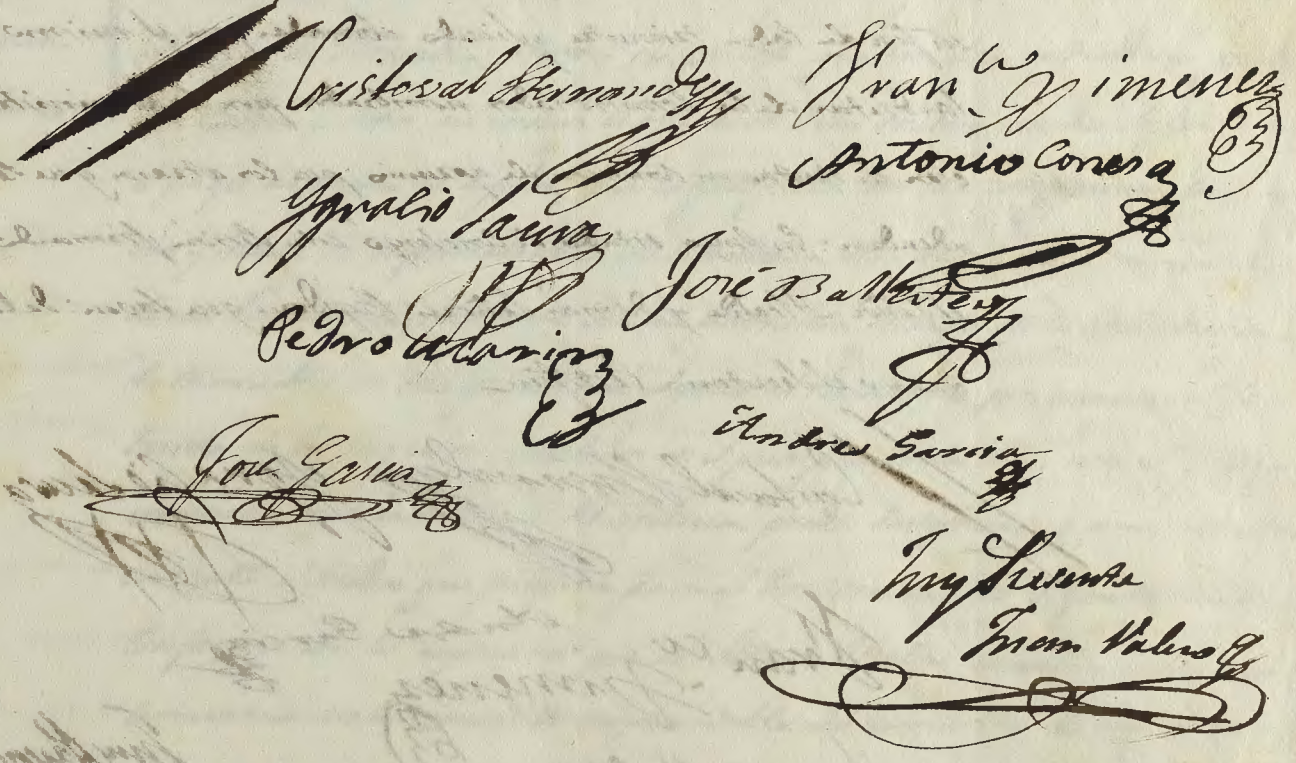 Cristoval Hernandez
Fran.co Ximenez
Antonio Conesa
Ygnasio Saura
José Ballester
Pedro Marin
Andres Garcia
José Garcia
Fuy Presente
Juan Valero